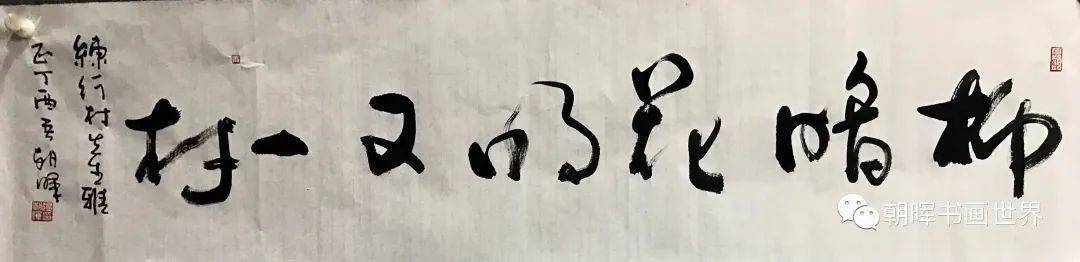 柳暗花明又一村
練行村先生雅
正丁酉季朝暉
朝晖书画世界